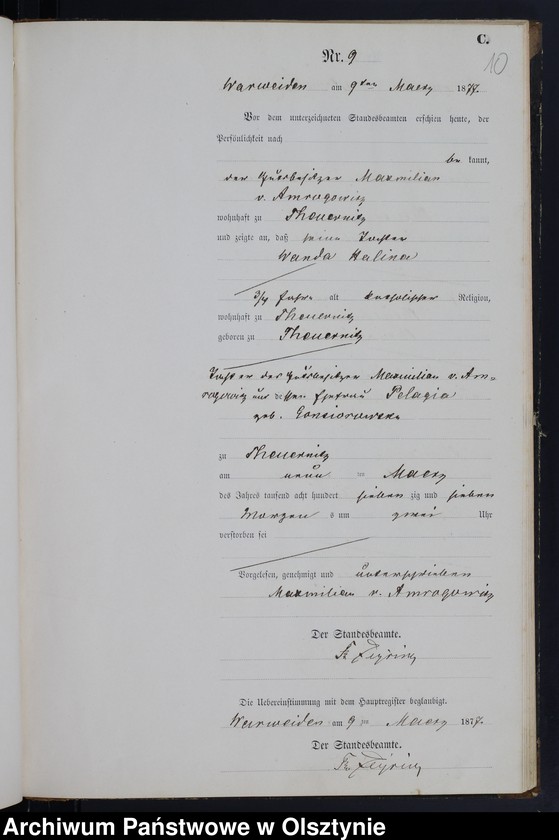 C.
10
Nr. 9
Warweiden am 9ten Maerz 1877.
Vor dem unterzeichneten Standesbeamten erschien heute, der
Persönlichkeit nach
be kannt,
der Gutsbesitzer Maximilian
v. Amrogowicz
wohnhaft zu Theuernitz
und zeigte an, daß seine Tochter
Wanda Halina
3/4 Jahre alt katholischer Religion,
wohnhaft zu Theuernitz
geboren zu Theuernitz
Tochter des Gutsbesitzer Maximilian v. Am-
rogowicz und dessen Ehefrau Pelagia
geb.
zu Theuernitz
am neun ten Maerz
des Jahres tausend acht hundert sieben zig und sieben
Morgen s um zwei Uhr
verstorben sei
Vorgelesen, genehmigt und unterschrieben
Maximilian v. Amrogowicz
Der Standesbeamte.
Die Uebereinstimmung mit dem Hauptregister beglaubigt.
Warweiden am 9 ten Maerz 1877.
Der Standesbeamte.
Archiwum Państwowe w Olsztynie